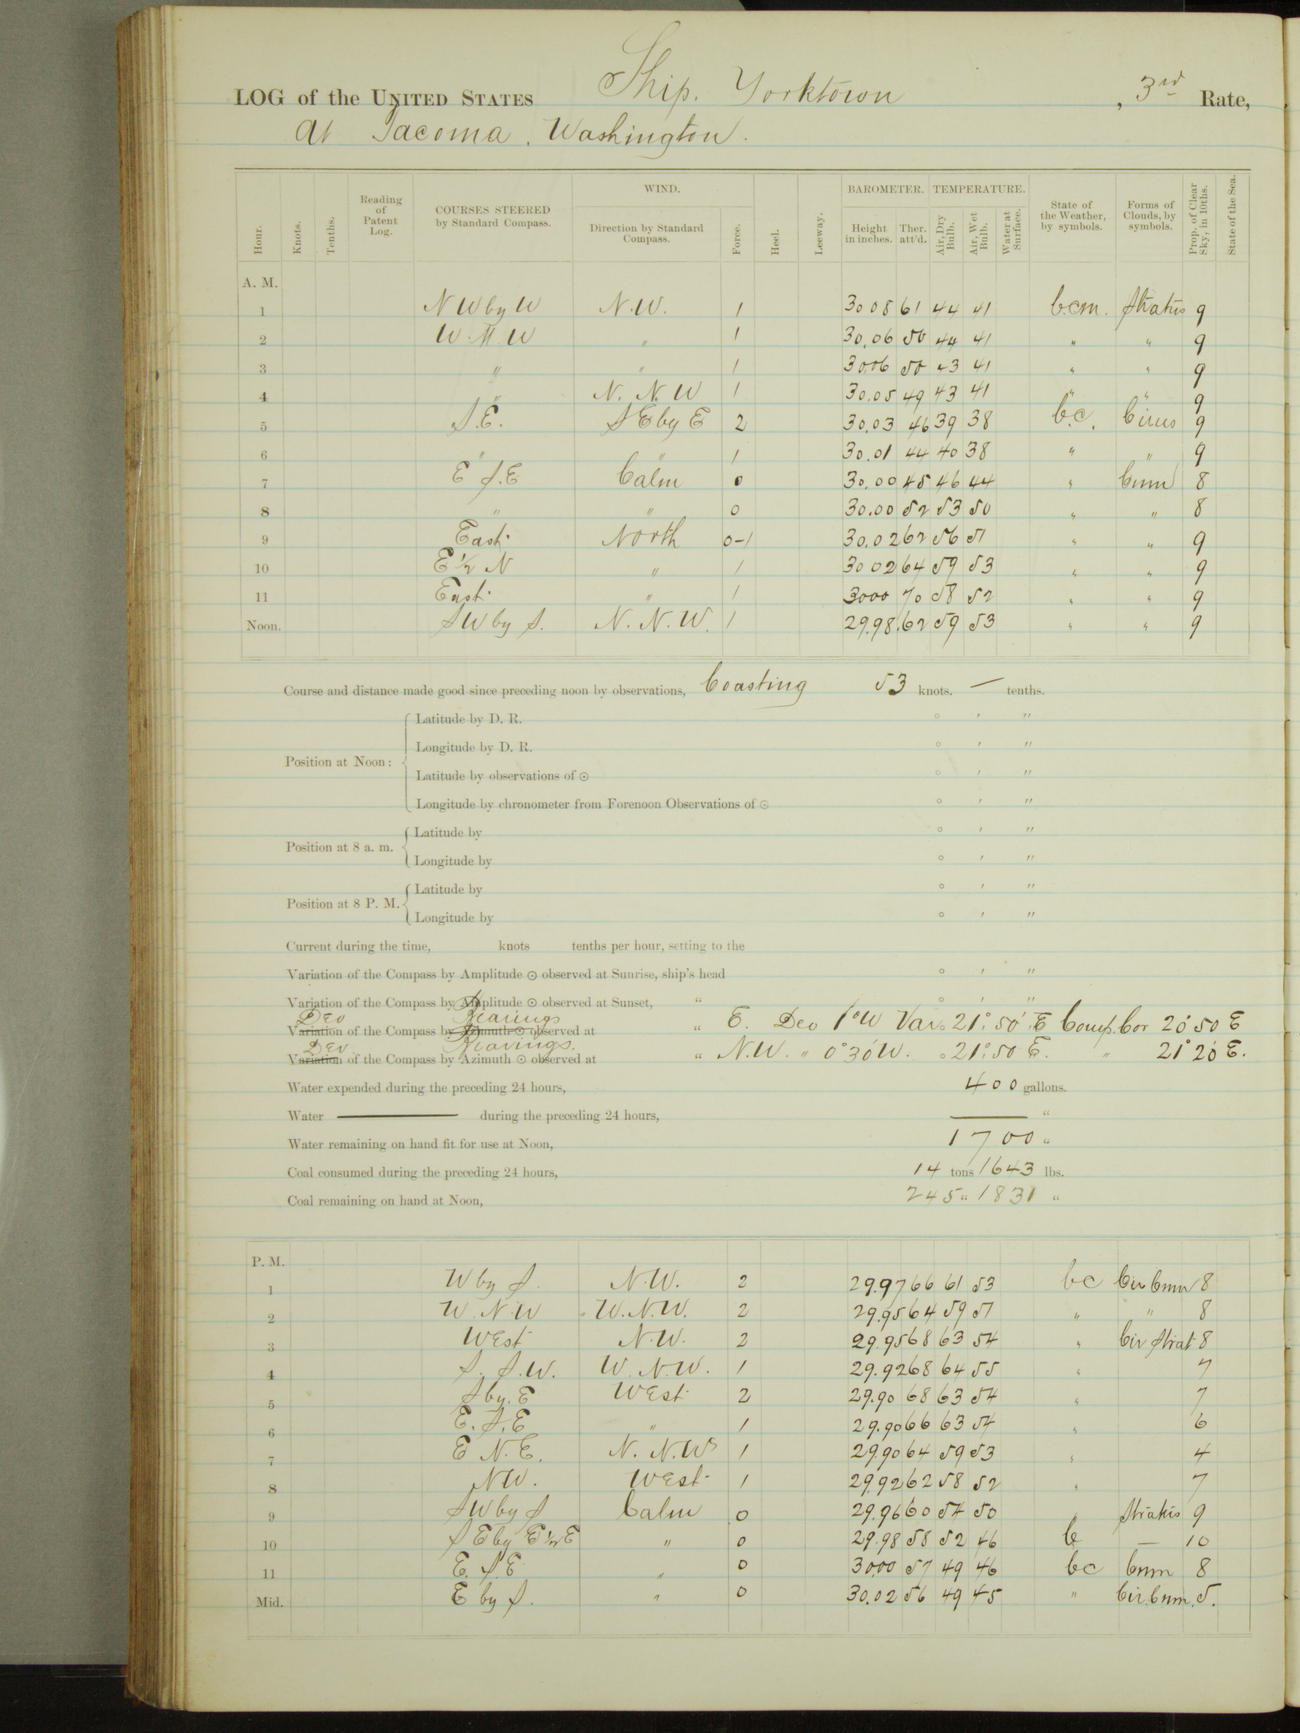 LOG of the UNITED STATES Ship. Yorktown, 3rd Rate,
At Tacoma, Washington.
Hour. Knots. Tenths. Reading of Patent Log. COURSES STEERED by Standard Compass. WIND. Direction by Standard Compass. Force. Heel. Leeway. BAROMETER. Height in inches. Ther. att'd. TEMPERATURE. Air, Dry Bulb. Air, Wet Bulb. Water at Surface. State of the Weather, by symbols. Forms of Clouds, by symbols. Prop. of Clear Sky, in 10ths. State of the Sea.
A. M.
1 NW by W N.W. 1 30 08 61 44 41 b.c.m. Stratus 9
2 W N W " 1 30.06 50 44 41 " " 9
3 " " 1 30.06 50 43 41 " " 9
4 " N. N. W 1 30.05 49 43 41 " " 9
5 S.E. S E by E 2 30.03 46 39 38 b.c. Cirus 9
6 " " 1 30.01 44 40 38 " " 9
7 E S.E Calm 0 30.00 45 46 44 " Cum 8
8 " " 0 30.00 52 53 50 " " 8
9 East. North 0-1 30.02 62 56 51 " " 9
10 E ½ N " 1 30 02 64 59 53 " " 9
11 East. " 1 3000 70 58 52 " " 9
Noon. SW by S. N. N. W. 1 29.98. 62 59 53 " " 9
Course and distance made good since preceding noon by observations, Coasting 53 knots. — tenths.
Position at Noon:
Latitude by D. R. ° ' "
Longitude by D. R. ° ' "
Latitude by observations of ☉ ° ' "
Longitude by chronometer from Forenoon Observations of ☉ ° ' "
Position at 8 a. m.
Latitude by ° ' "
Longitude by ° ' "
Position at 8 P. M.
Latitude by ° ' "
Longitude by ° ' "
Current during the time, knots tenths per hour, setting to the
Variation of the Compass by Amplitude ☉ observed at Sunrise, ship's head ° ' "
Variation of the Compass by Amplitude ☉ observed at Sunset, " ° ' "
Dev Bearings
Variation of the Compass by Azimuth ☉ observed at " E. Dev 1°W Var. 21° 50' E Comp. Cor 20° 50 E
Dev Bearings.
Variation of the Compass by Azimuth ☉ observed at " N.W. " 0° 30' W. 21° 50 E. " 21° 20' E.
Water expended during the preceding 24 hours, 400 gallons.
Water — during the preceding 24 hours, — "
Water remaining on hand fit for use at Noon, 1700 "
Coal consumed during the preceding 24 hours, 14 tons 1643 lbs.
Coal remaining on hand at Noon, 245 " 1831 "
P. M.
1 W by S. N.W. 2 29.97 66 61 53 bc Cir Cum 8
2 W. N. W W.N.W. 2 29.95 64 59 51 " " 8
3 West N.W. 2 29.95 68 63 54 " Cir Strat 8
4 S. S.W. W. N.W. 1 29.92 68 64 55 " 7
5 S by. E West 2 29.90 68 63 54 " 7
6 E. S.E " 1 29.90 66 63 54 " 6
7 E N.E. N. N.W 1 29.90 64 59 53 " 4
8 NW. West 1 29.92 62 58 52 " 7
9 SW by S Calm 0 29.96 60 54 50 Stratus 9
10 S E by E ½ E " 0 29.98 58 52 46 b — 10
11 E. S.E " 0 30.00 57 49 46 bc Cum 8
Mid. E by S. " 0 30.02 56 49 45 " Cir. Cum. 5.